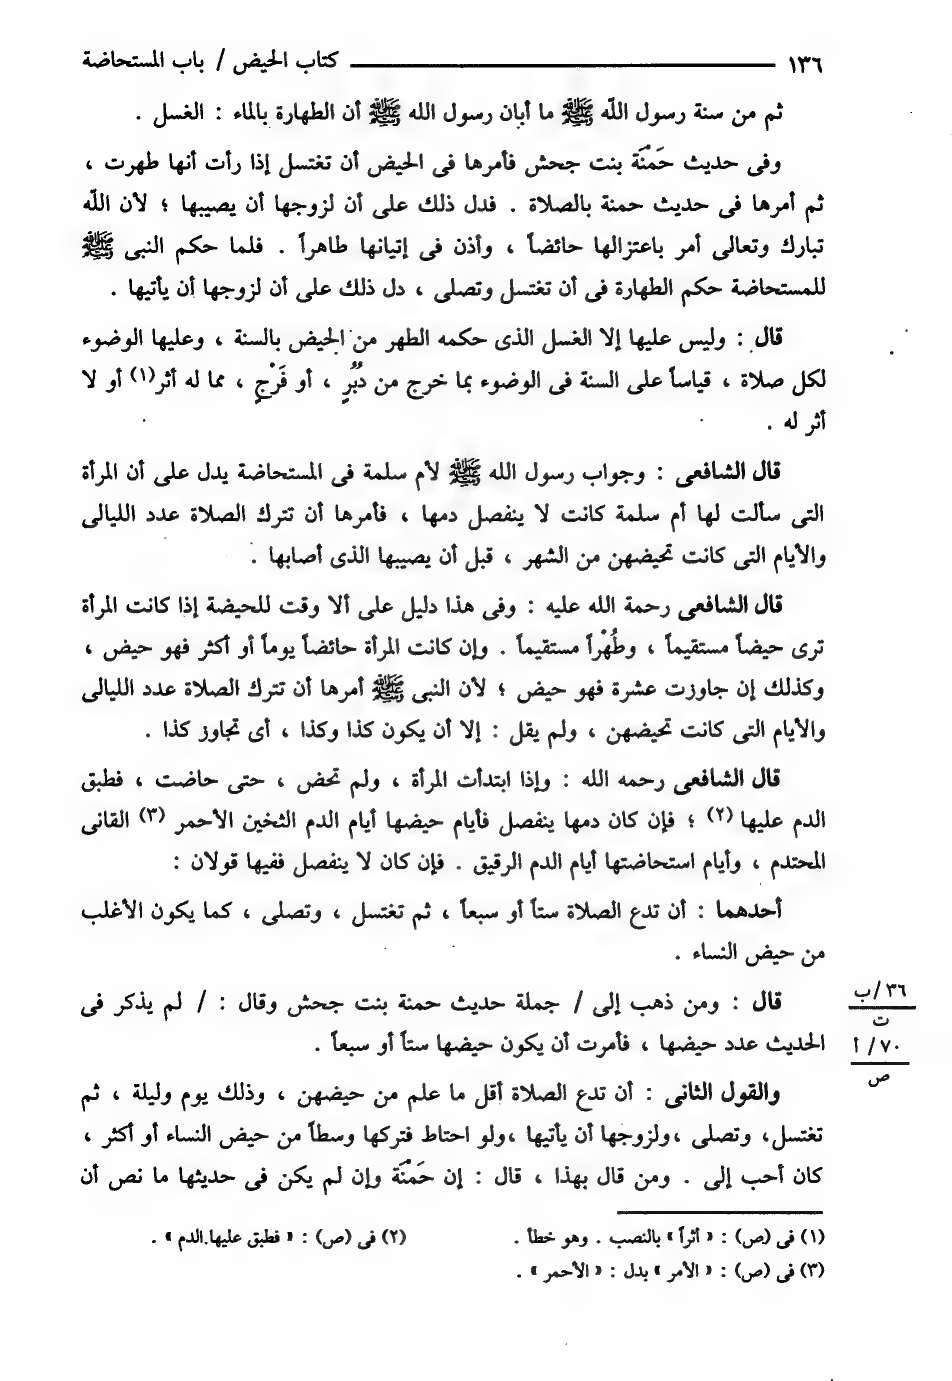 ١٣٦ ـــــــــــــــــــــــــــــــــ كتاب الحيض / باب المستحاضة
ثم من سنة رسول اللّه ﷺ ما أبان رسول الله ﷺ أن الطهارة بالماء : الغسل .
وفى حديث حَمْنَة بنت جحش فأمرها فى الحيض أن تغتسل إذا رأت أنها طهرت ،
ثم أمرها فى حديث حمنة بالصلاة . فدل ذلك على أن لزوجها أن يصيبها ؛ لأن اللّه
تبارك وتعالى أمر باعتزالها حائضاً ، وأذن فى إتيانها طاهراً . فلما حكم النبى ﷺ
للمستحاضة حكم الطهارة فى أن تغتسل وتصلى ، دل ذلك على أن لزوجها أن يأتيها .
قال : وليس عليها إلا الغسل الذى حكمه الطهر من الحيض بالسنة ، وعليها الوضوء
لكل صلاة ، قياساً على السنة فى الوضوء بما خرج من دُبُرٍ ، أو فَرْجٍ ، مما له أثر(١) أو لا
أثر له .
قال الشافعى : وجواب رسول الله ﷺ لأم سلمة فى المستحاضة يدل على أن المرأة
التى سألت لها أم سلمة كانت لا ينفصل دمها ، فأمرها أن تترك الصلاة عدد الليالى
والأيام التى كانت تحيضهن من الشهر ، قبل أن يصيبها الذى أصابها .
قال الشافعى رحمة الله عليه : وفى هذا دليل على ألا وقت للحيضة إذا كانت المرأة
ترى حيضاً مستقيماً ، وطُهْراً مستقيماً . وإن كانت المرأة حائضاً يوماً أو أكثر فهو حيض ،
وكذلك إن جاوزت عشرة فهو حيض ؛ لأن النبى ﷺ أمرها أن تترك الصلاة عدد الليالى
والأيام التى كانت تحيضهن ، ولم يقل : إلا أن يكون كذا وكذا ، أى تجاوز كذا .
قال الشافعى رحمه الله : وإذا ابتدأت المرأة ، ولم تحض ، حتى حاضت ، فطبق
الدم عليها (٢) ؛ فإن كان دمها ينفصل فأيام حيضها أيام الدم الثخين الأحمر (٣) القانى
المحتدم ، وأيام استحاضتها أيام الدم الرقيق . فإن كان لا ينفصل ففيها قولان :
أحدهما : أن تدع الصلاة ستاً أو سبعاً ، ثم تغتسل ، وتصلى ، كما يكون الأغلب
من حيض النساء .
قال : ومن ذهب إلى / جملة حديث حمنة بنت جحش وقال : / لم يذكر فى
الحديث عدد حيضها ، فأمرت أن يكون حيضها ستاً أو سبعاً .
٣٦ /ب
ت
٧٠ / أ
ص
والقول الثانى : أن تدع الصلاة أقل ما علم من حيضهن ، وذلك يوم وليلة ، ثم
تغتسل، وتصلى ،ولزوجها أن يأتيها ،ولو احتاط فتركها وسطاً من حيض النساء أو أكثر ،
كان أحب إلى . ومن قال بهذا ، قال : إن حَمْنَة وإن لم يكن فى حديثها ما نص أن
(١) فى (ص) : « أثراً » بالنصب . وهو خطأ . (٢) فى (ص) : « فطبق عليها الدم » .
(٣) فى (ص) : « الأمر » بدل : « الأحمر » .